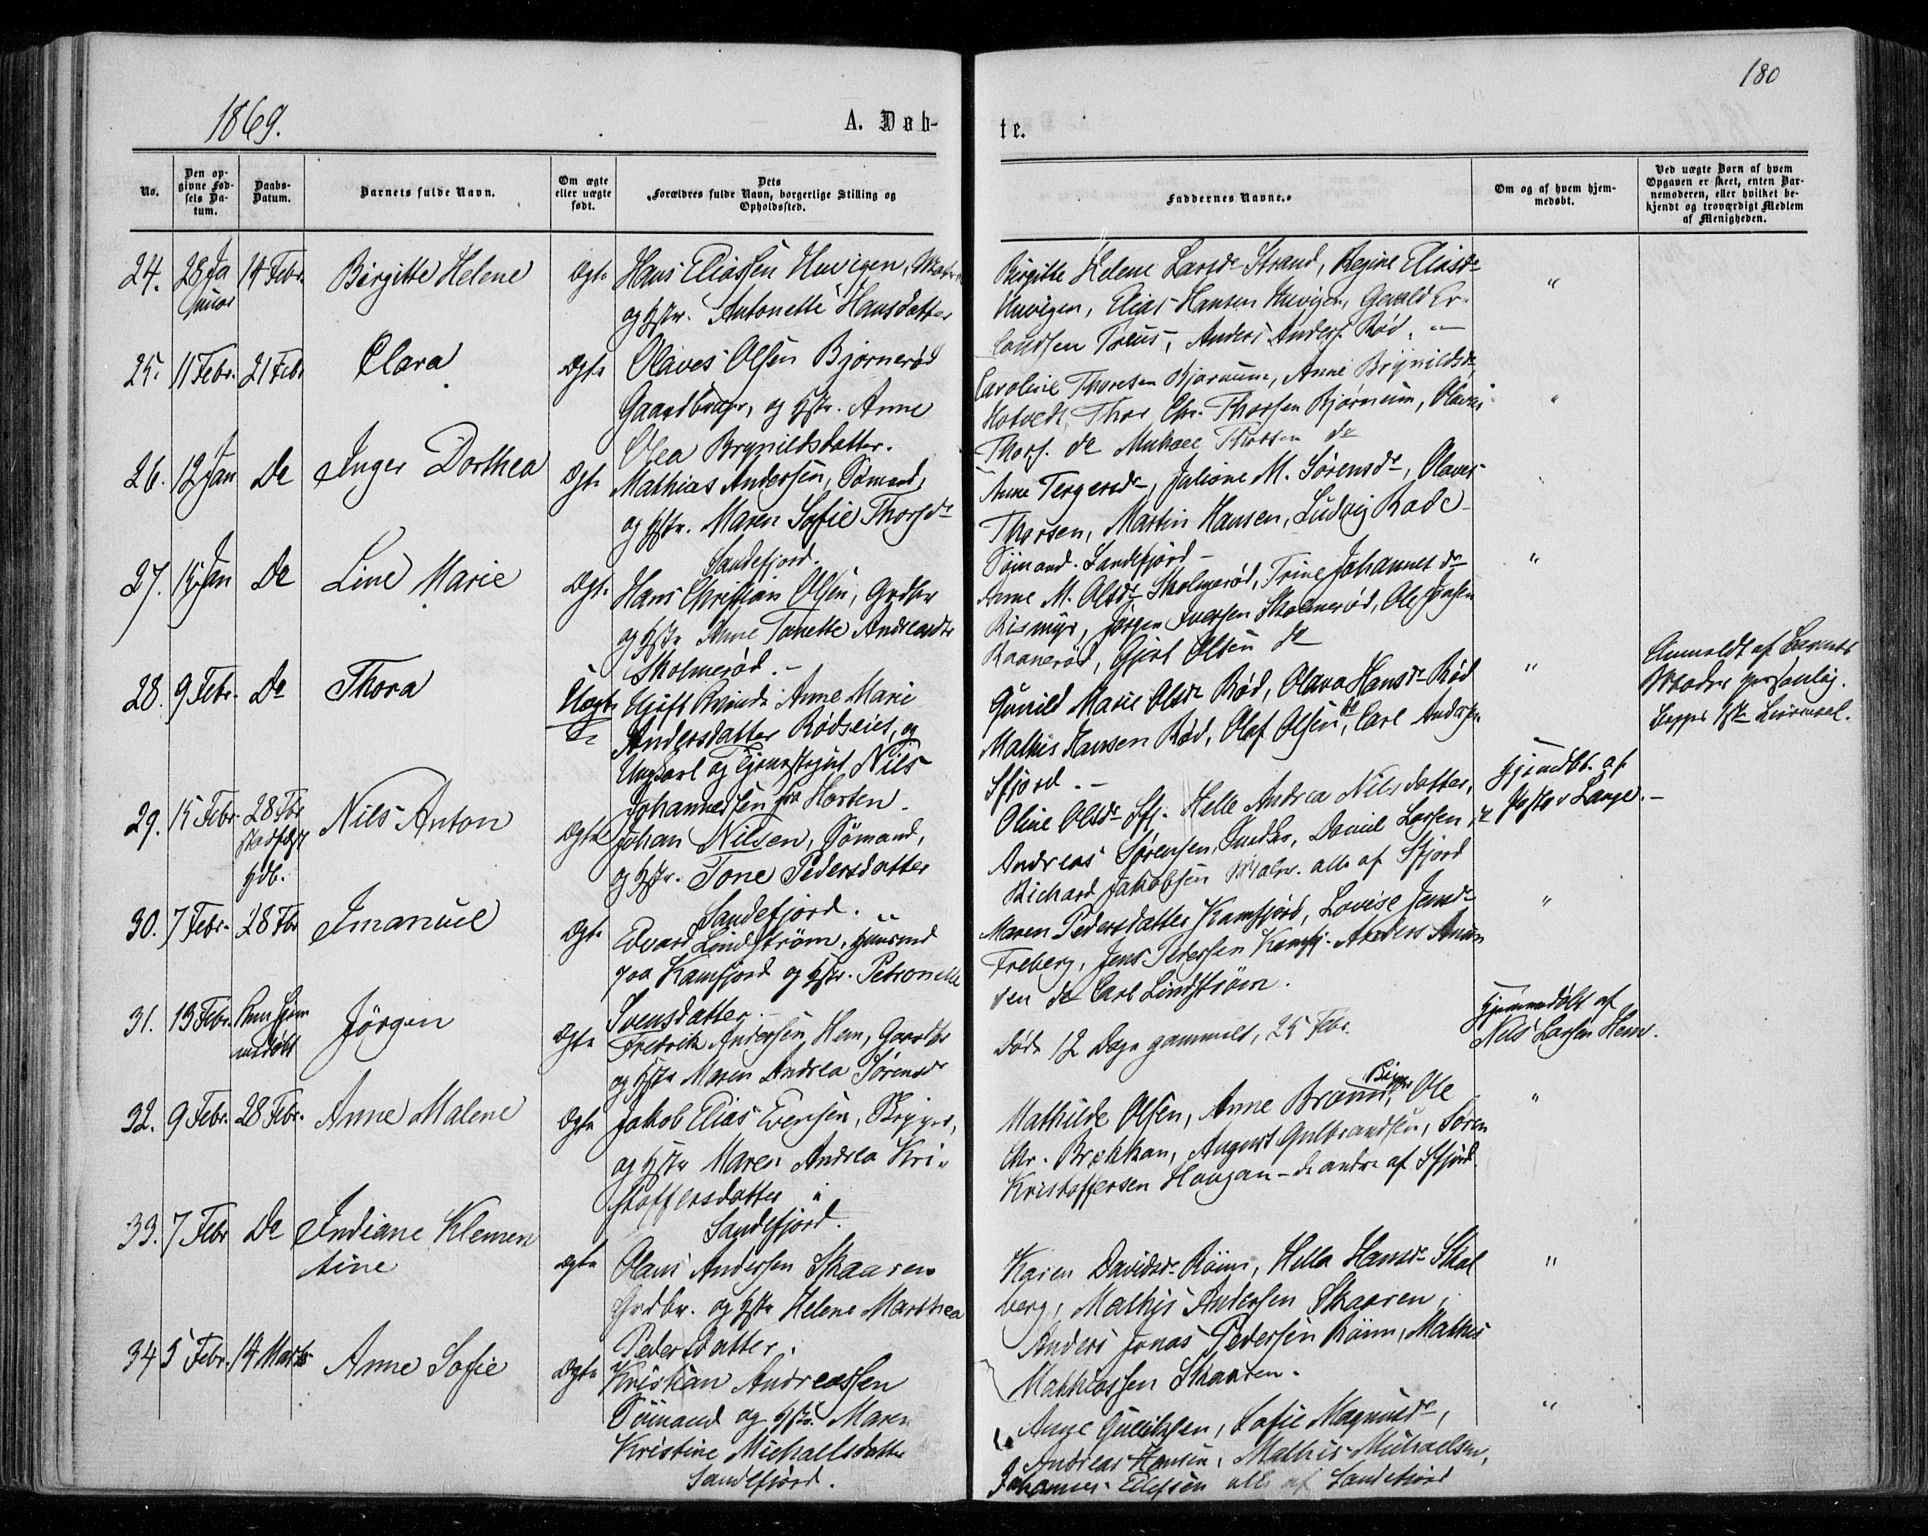 180
1869.
A. Døb-
te.
No.
Den op-
givne Fød-
sels Da-
tum.
Daabs-
Datum.
Barnets fulde Navn.
Om ægte
eller uægte
født.
Dets
Forældres fulde Navn, borgerlige Stilling og
Opholdssted.
Faddernes Navne.
Om og af hvem hjem-
medøbt.
Ved uægte Børn af hvem
Opgaven er skeet, enten Bar-
nemoderen, eller hvilket be-
kjendt og troværdigt Medlem
af Menigheden.
24. 28 Ja 14 Febr. Birgitte Helene Ægte Hans Eliassen Huvigen,
nuar
og Hstr. Antonette Hansdatter
Birgitte Helene Larsdr Strand, Regine Eliasdr
Huvigen, Elias Hansen Huvigen, Er-
landsen Anders Anders. Rød. "
"
25. 11 Febr. 21 Febr Clara Ægte Olaves Olsen Bjørnerød
Gaardbruger, og Hstr. Anne
Olea Brynildsdatter.
Caroline Thoresen Bjørnum, Anne Brynildsdr
Hotvedt, Thor Chr. Thorsen Bjørnum, Olaves
Thors. do Mickael Thorsen do
"
26. 12 Jan Do Inger Dorthea Ægte Mathias Andersen, Sømand,
og Hstr. Maren Sofie Thorsdr
Sandefjord.
Anne Tergersdr, Juliane M. Sørensdr, Olaves
Thorsen, Martin Hansen, Ludvig Rode
Sømand. Sandefjord -
27. 15 Jan Do Line Marie Ægte Hans Christian Olsen, Grdbr
og Hstr Anne Tonette Andreasdr
Skolmerød. -
Anne M. Olsdr Skolmerød, Trine Johannesdr
Rismyr, Jørgen Iversen Skolmerød, Ole Jensen
Raanerød, Gjert Olsen do
"
28. 9 Febr. Do Thora Uægte Ugift Kvinde Anne Marie
Andersdatter Rødseiet, og
Ungkarl og Tjenestegut Nils
Johannessen fra Horten.
Gunild Marie Olsdr Rød, Olava Hansdr Rød
Mathis Hansen Rød, Olaf Olsen do, Carl Anders.
Sfjord. -
"
Anmeldt af Barnets
Moder personlig.
29. 15 Febr 28 Fbr Nils Anton Ægte Johan Nilsen, Sømand,
Hdb.
og Hstr. Tone Pedersdatter
Sandefjord.
Oline Olsdr Sfj. Helle Andrea Nilsdatter,
Andreas Sørensen, Daniel Larsen,
Richard Jakobsen alle af Sfjord
Hjemdbt. af
Pastor Lange. -
30. 7 Febr. 28 Fbr Imanuel Ægte Edvard Lindstrøm, Husmd
paa Kamfjord og Hstr. Petronelle
Svensdatter.
Maren Pedersdatter Kamfjord, Lovise Jensdr
Freberg, Jens Pedersen Kamfj. Anders
sen do Carl Lindstrøm.
"
31. 13 Febr. Kun hjem Jörgen Ægte Fredrik Andersen Hem, Gaardbr
medøbt
og Hstr Maren Andrea Sørensdr
Døde 12 Dage gammelt, 25 Febr.
Hjemmedøbt af
Nils Larsen Hem.
32. 9 Febr. 28 Febr. Anne Malene Ægte Jakob Elias Evensen, Skipper,
og Hstr Maren Andrea Kri-
stoffersdatter i
Sandefjord.
Mathilde Olsen, Anne Ole
Chr. Brekkan, August Gulbrandsen, Søren
Kristoffersen Haugan - de andre af Sfjord.
"
33. 7 Febr Do Indiane Klemen
tine
ægte Olaus Andersen Skaaren
Grdbr. og Hstr Helene Marthea
Pedersdatter.
Karen Davidsdr Röim, Hella Hansdr Skol
berg, Mathis Andersen Skaaren,
Anders Jonas Pedersen Röim, Mathis
Mathiassen Skaaren.
"
34 5 Febr. 14 Marts Anne Sofie Ægte Kristian Andreassen
Sömand og Hstr. Maren
Kristine Michaelsdatter
Sandefjord.
Anne Gulliksen, Sofie Magnusdr,
Andreas Hansen, Mathis Michaelsen,
Johannes Ellefsen alle af Sandefjord
"